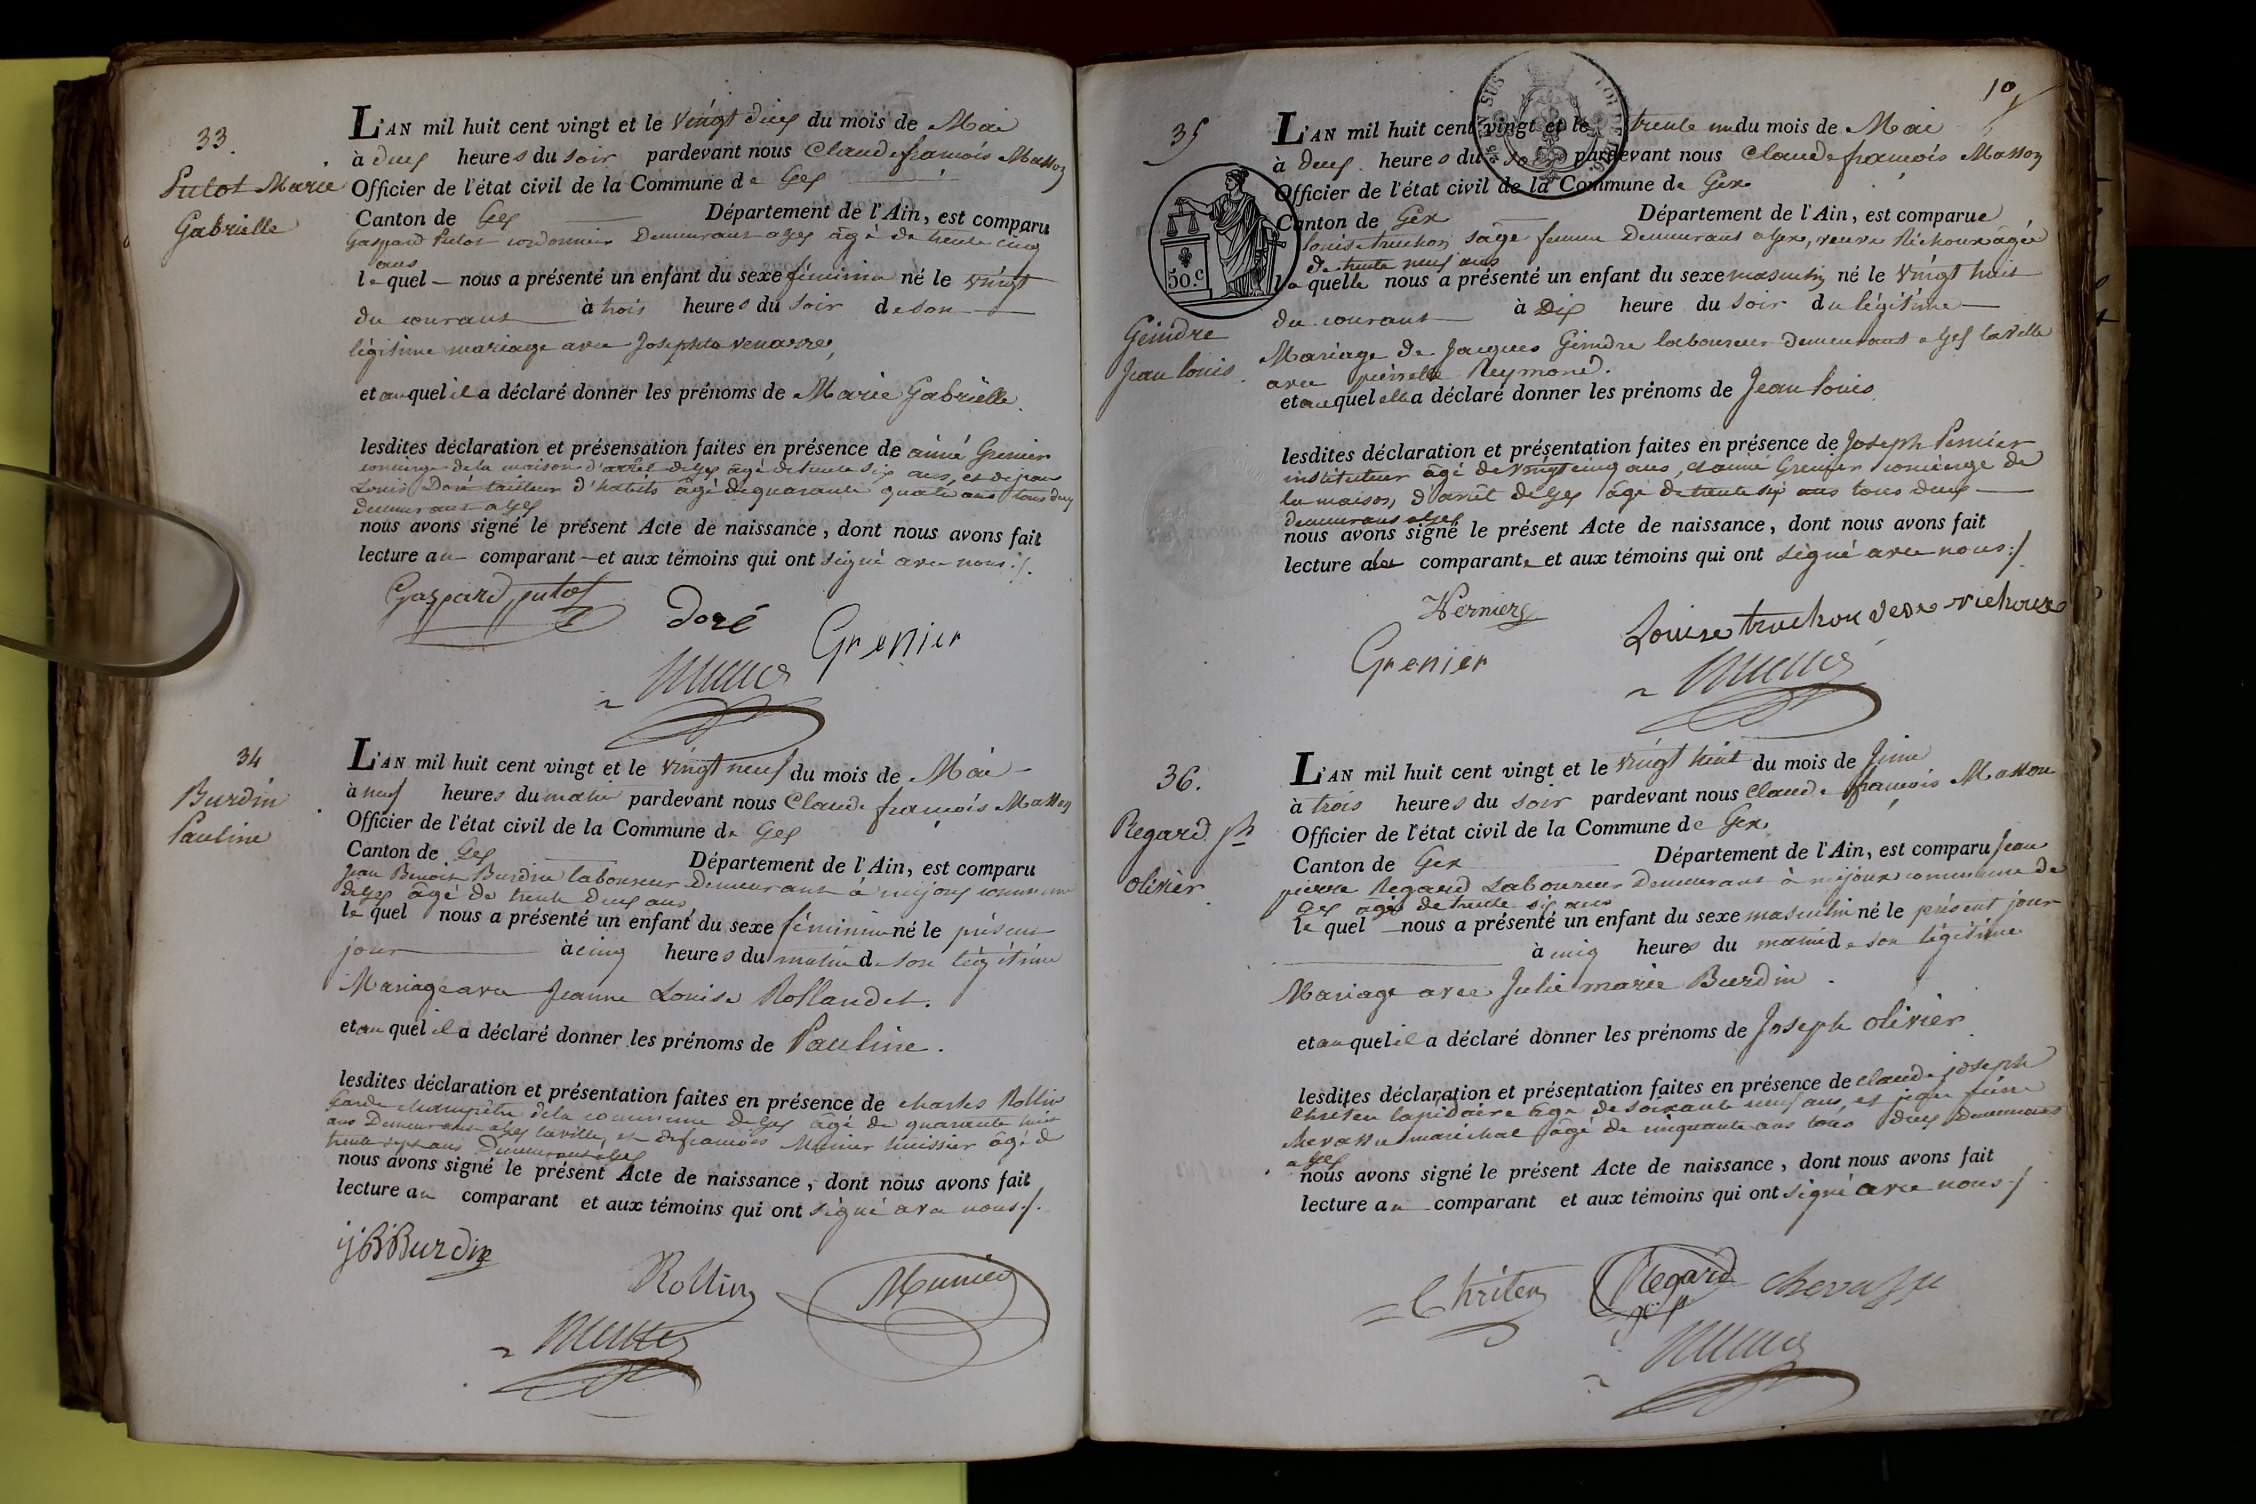 33.
Putot Marie
Gabrielle
L'AN mil huit cent vingt et le vingt deux du mois de Mai
à deux heures du soir pardevant nous Claude françois Masson
Officier de l'état civil de la Commune de Gex
Canton de Gex Département de l'Ain, est comparu
Gaspard Putot cordonnier Demeurant a Gex âgé de trente cinq
ans
lequel nous a présenté un enfant du sexe féminin né le vingt
du courant à trois heures du soir de son
légitime mariage avec Josephte
et auquel il a déclaré donner les prénoms de Marie Gabrielle.
lesdites déclaration et présensation faites en présence de aimé Grenier
concierge de la maison d'arrêt de Gex âgé de trente six ans, et de jean
Louis Doré tailleur d'habits âgé de quarante quatre ans tous deux
demeurant a Gex
nous avons signé le présent Acte de naissance, dont nous avons fait
lecture au comparant et aux témoins qui ont signé avec nous ./.
Gaspard putot
Doré
Grenier
34
Burdin
Pauline
L'AN mil huit cent vingt et le vingt neuf du mois de Mai
à neuf heures du matin pardevant nous Claude françois Masson
Officier de l'état civil de la Commune de Gex
Canton de Gex Département de l'Ain, est comparu
Jean Benoit Burdin laboureur Demeurant à mijoux commune
de Gex âgé de trente deux ans
lequel nous a présenté un enfant du sexe féminin né le présent
jour à cinq heures du matin de son légitime
Mariage avec Jeanne Louise Rollandet.
et auquel il a déclaré donner les prénoms de Pauline.
lesdites déclaration et présentation faites en présence de charles Rollin
Garde champêtre de la commune de Gex âgé de quarante huit
ans Demeurant a Gex la ville, et de françois Munier huissier âgé de
trente sept ans Demeurant a Gex
nous avons signé le présent Acte de naissance, dont nous avons fait
lecture au comparant et aux témoins qui ont signé avec nous ./.
jBBurdin
Rollin
Munier
10
35
Geindre
Jean Louis.
50.c
L'AN mil huit cent vingt et le trente un du mois de Mai
à deux heures du soir pardevant nous Claude françois Masson
Officier de l'état civil de la Commune de Gex
Canton de Gex Département de l'Ain, est comparue
Louise truchon sage femme Demeurant a Gex, veuve Richoux âgée
de trente neuf ans
laquelle nous a présenté un enfant du sexe masculin né le vingt huit
du courant à Dix heure du soir du légitime
Mariage de Jacques Geindre laboureur demeurant a Gex la ville
avec pierrette Reymond.
et auquel elle a déclaré donner les prénoms de Jean Louis
lesdites déclaration et présentation faites en présence de Joseph Pernier
instituteur âgé de vingt cinq ans, et aimé Grenier concierge de
la maison d'arrêt de Gex âgé de trente six ans tous deux
demeurant a Gex
nous avons signé le présent Acte de naissance, dont nous avons fait
lecture a la comparante et aux témoins qui ont signé avec nous ./.
Louise truchon veuve richoux
Grenier
36.
Regard jph
olivier.
L'AN mil huit cent vingt et le vingt huit du mois de Juin
à trois heures du soir pardevant nous Claude françois Masson
Officier de l'état civil de la Commune de Gex
Canton de Gex Département de l'Ain, est comparu Jean
pierre Regard Laboureur Demeurant à mijoux commune de
Gex âgé de trente six ans
lequel nous a présenté un enfant du sexe masculin né le présent jour
à cinq heures du matin de son légitime
Mariage avec Julie marie Burdin.
et auquel il a déclaré donner les prénoms de Joseph olivier
lesdites déclaration et présentation faites en présence de claude joseph
Chriten lapidaire âgé de soixante neuf ans, et jean pierre
chevassu maréchal âgé de cinquante ans tous deux Demeurant
a Gex
nous avons signé le présent Acte de naissance, dont nous avons fait
lecture au comparant et aux témoins qui ont signé avec nous ./.
Chriten
Regard
chevassu